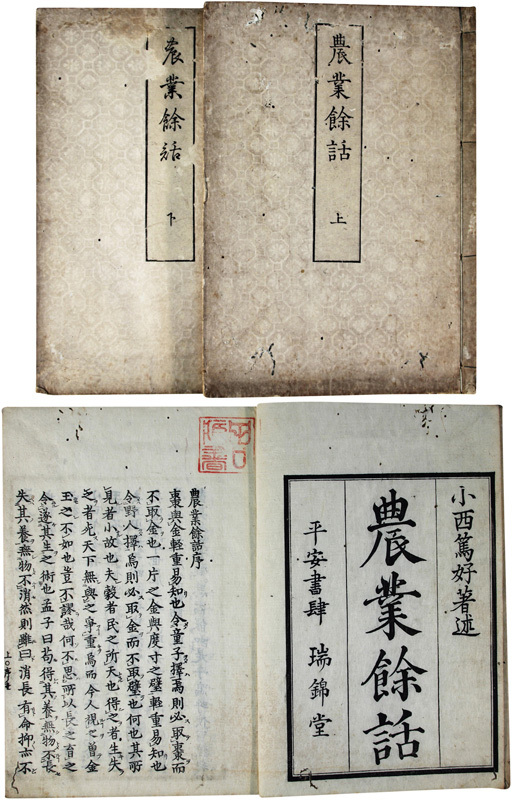 農業餘話 上
農業餘話 下
小西篤好著述
農業餘話
平安書肆 瑞錦堂
農業餘話序
棗與金輕重易知也令童子擇焉則必取棗而
不取金也一片之金與度寸之璧輕重易知也
令野人擇焉則必取金而不取璧也何也其所
見者小故也夫穀者民之所天也得之者生失
之者死天下無與之爭重焉而今人視之曾金
玉之不如也豈不謬哉何不思所以長之育之
令遂其生之術也孟子曰苟得其養無物不長
失其養無物不消然則雖曰消長有命抑亦不
上〇序